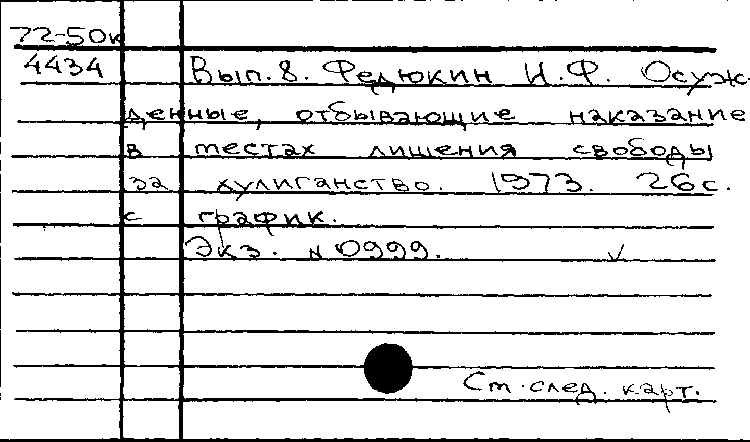 72-50к
4434 Вып. 8. Федюкин И.Ф. Осуж-
денные, отбывающие наказание
в местах лишения свободы
за хулиганство. 1973. 26с.
с график.
Экз. № 0999. ✓
Ст. след. карт.